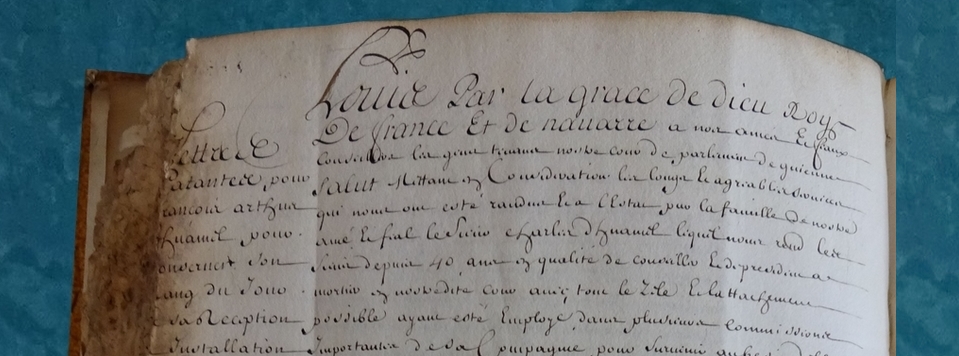 Louis Par la grace de dieu Roy
De france Et de navarre a nos amez Et feaux
Conseillers les gens tenans nostre cour de parlement de guienne
salut Mettant en Consideration les longs Et agreables services
qui nous ont esté rendus Et a l'Estat par la famille de nostre
amé Et feal le Sieur Charles lequel nous rend les
depuis 40 ans en qualité de conseiller Et de president a
mortier en nostredite cour avec tout le Zele Et l'attachement
possible ayant esté Employé dans plusieurs Commissions
Importantes de sa Compagnie pour
Lettres
Patantes pour
francois arthus
pour
son
rang du Jour
de sa Reception
Installation